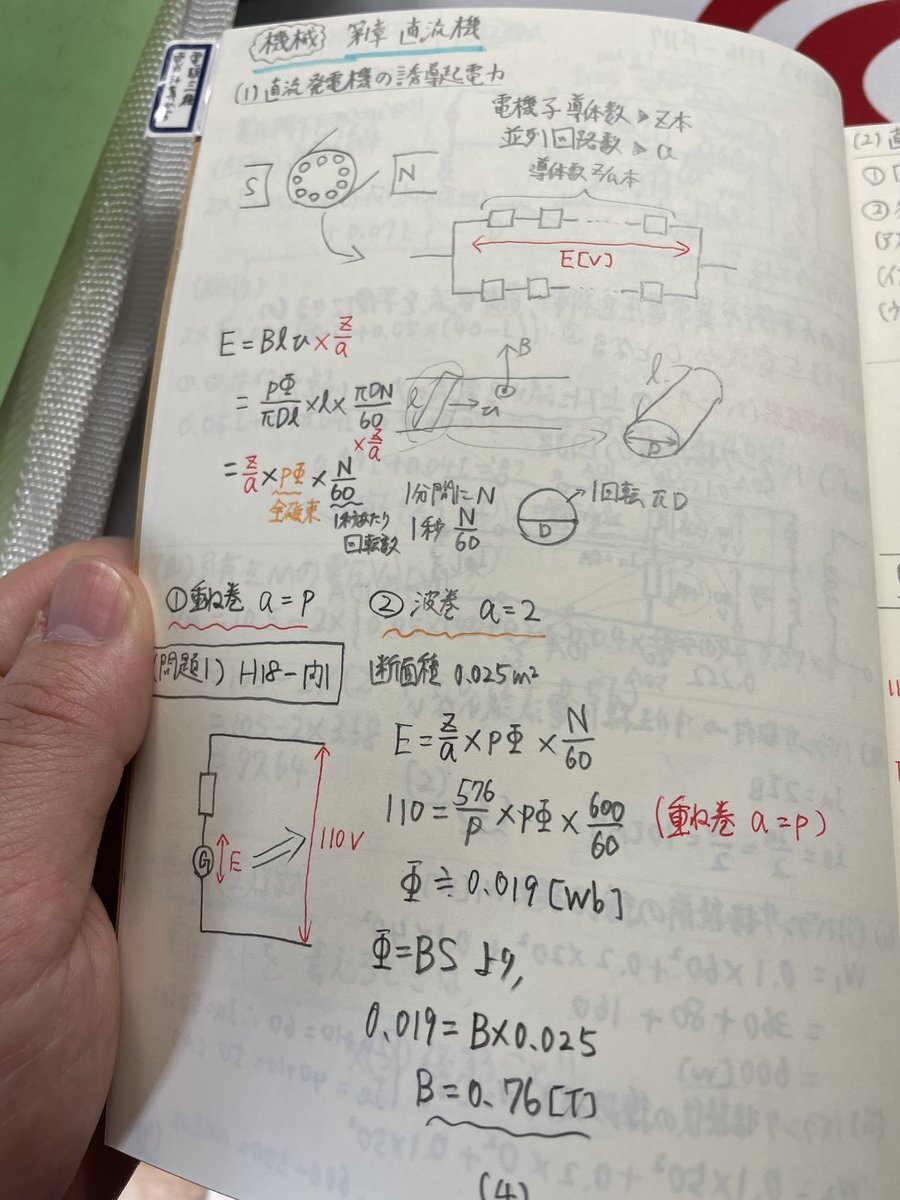 機械 第1章 直流機
(1) 直流発電機の誘導起電力
電機子導体数 ▶ Z本
並列回路数 ▶ a
導体数 Z/a本
S
N
E[V]
E = Blu × Z/a
= pΦ/πDl × l × πDN/60 × Z/a
= Z/a × pΦ × N/60
全磁束
1秒あたり
回転数
B
l
u
l
D
1分間に N
1秒 N/60
D
1回転 πD
① 重ね巻 a = p
② 波巻 a = 2
(問題1) H18-問1
断面種 0.025m²
E = Z/a × pΦ × N/60
110 = 576/p × pΦ × 600/60 (重ね巻 a = p)
Φ ≒ 0.019 [Wb]
Φ = BS より,
0.019 = B × 0.025
B = 0.76 [T]
(4)
G
E
110V
(2) 直
①
②
(ア)
(イ)
(ウ)